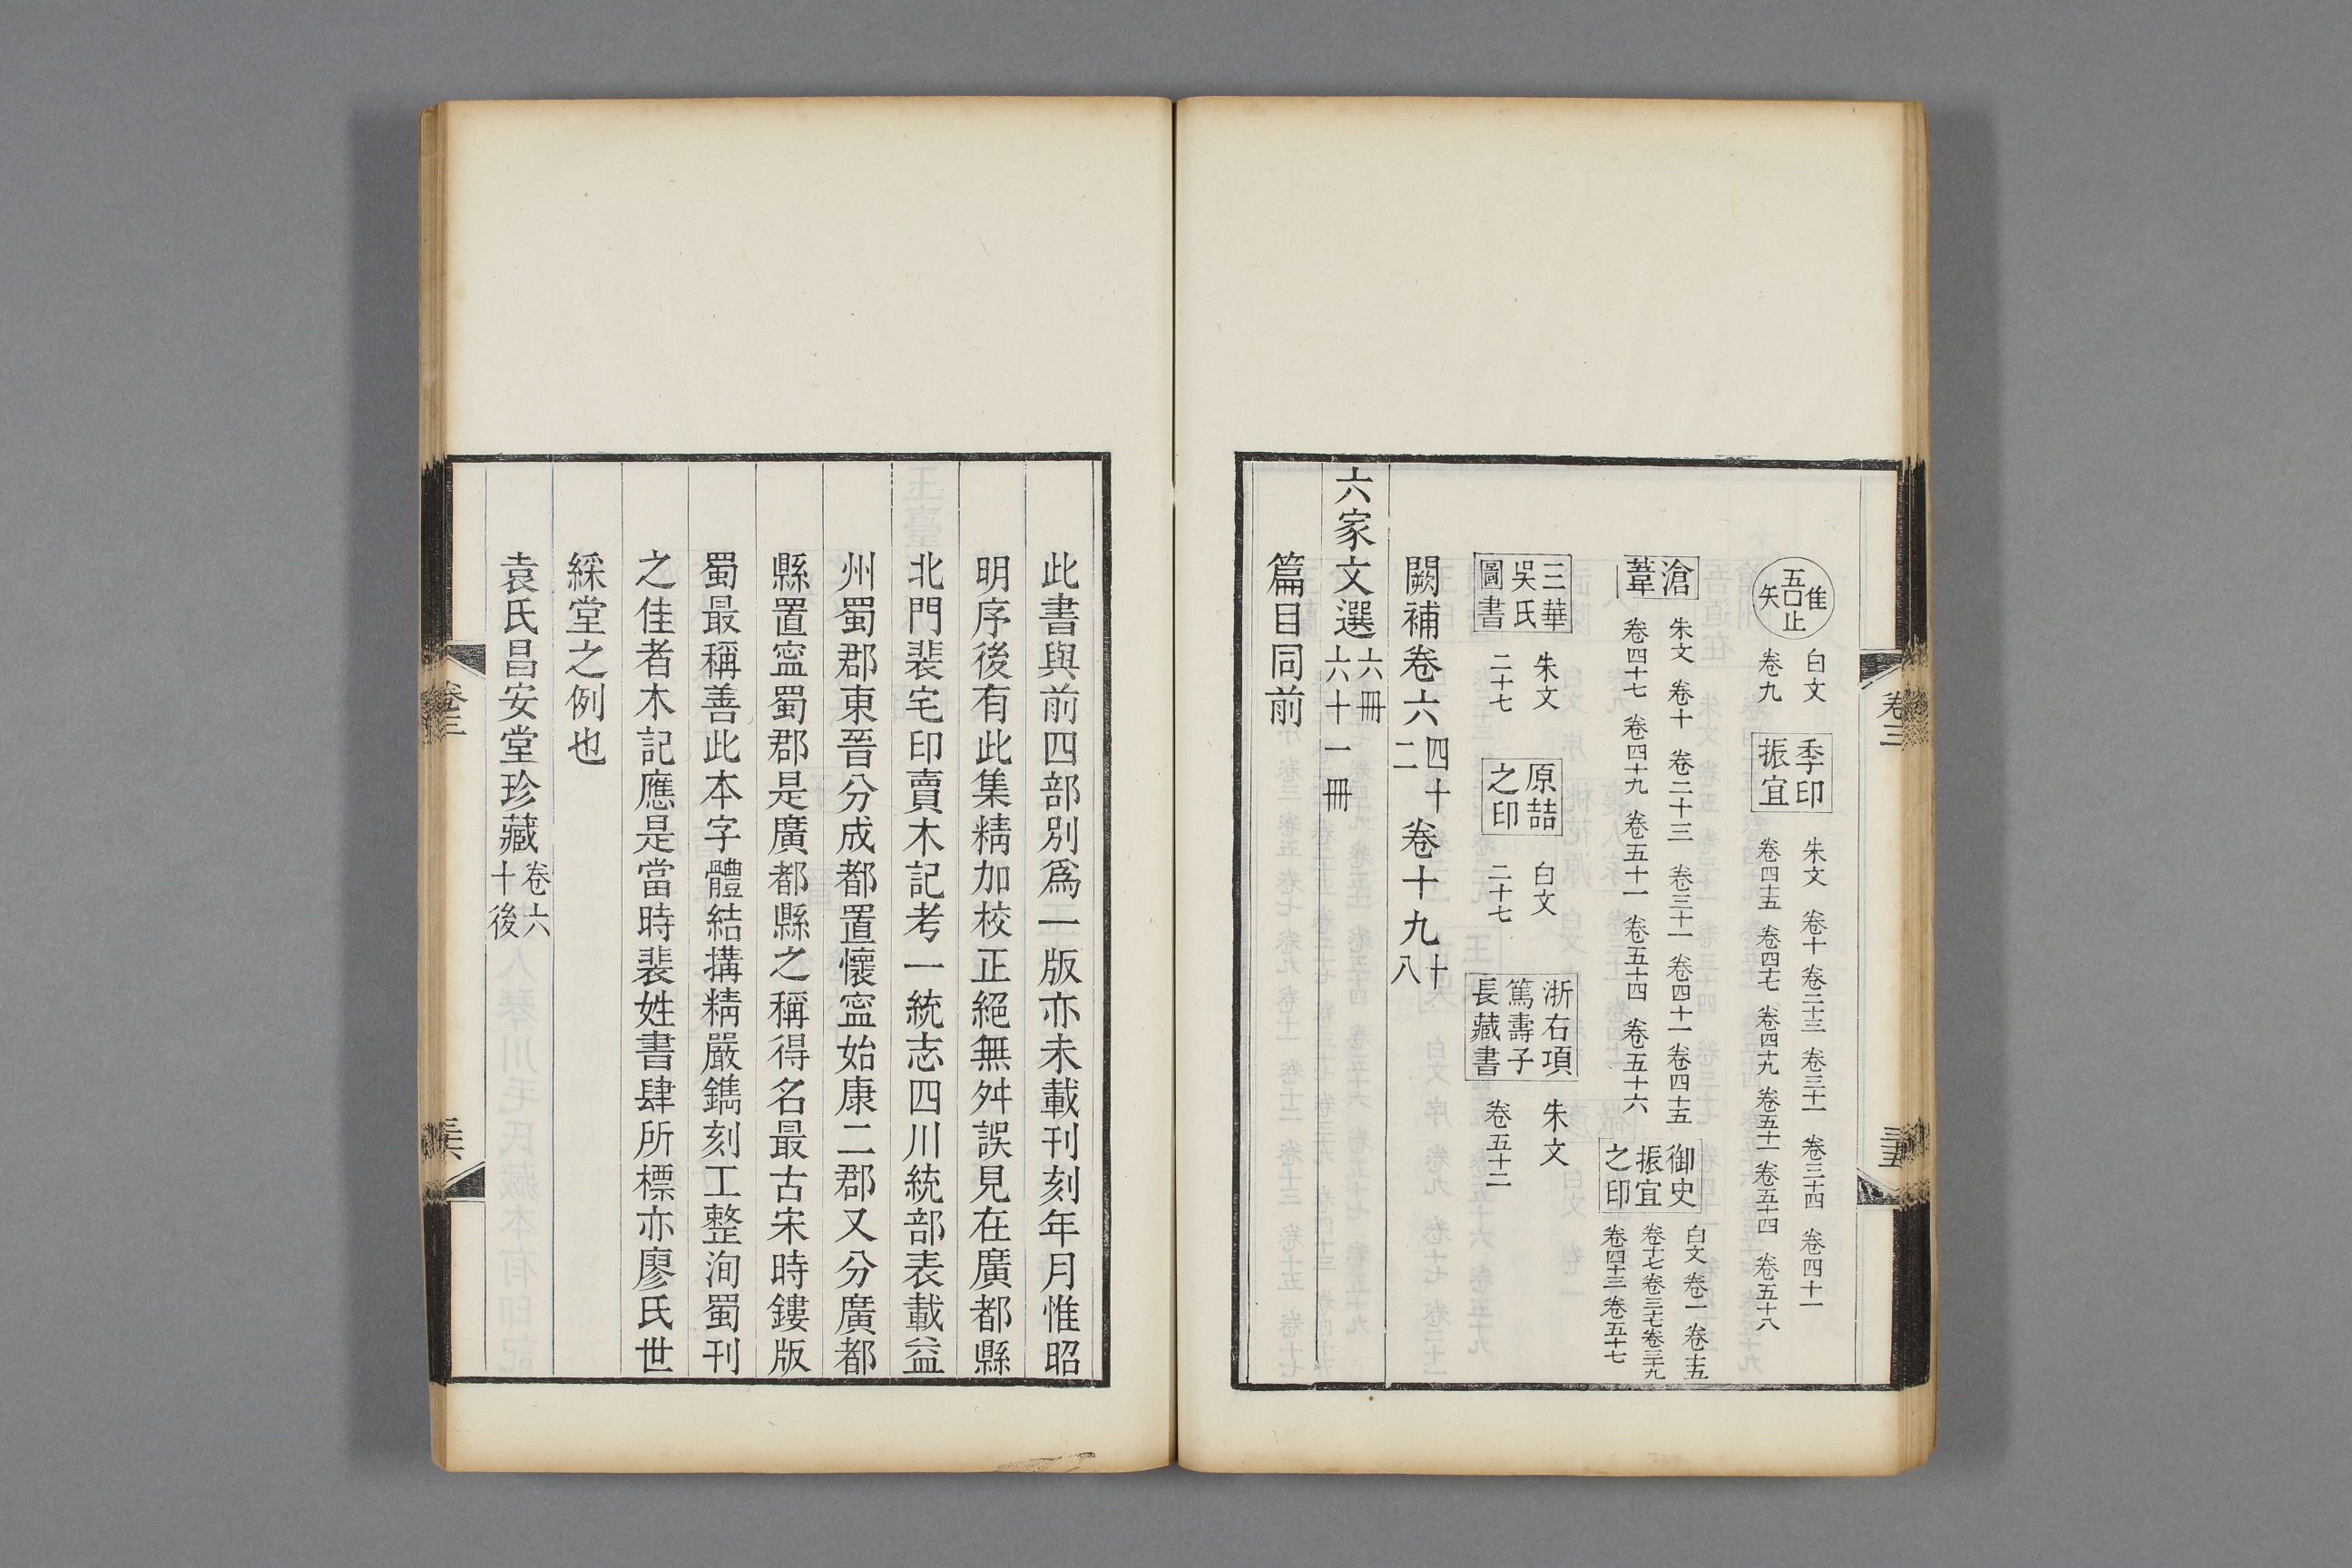 卷三 三五
隹五口矢止 白文 卷九 季印振宜 朱文 卷十 卷二十三 卷三十一 卷三十四 卷四十一 卷四十五 卷四十七 卷四十九 卷五十一 卷五十四 卷五十八
滄葦 朱文 卷十 卷二十三 卷三十一 卷四十一 卷四十五 卷四十七 卷四十九 卷五十一 卷五十四 卷五十六 御史振宜之印 白文 卷一 卷十五 卷十七 卷三十七 卷三十九 卷四十三 卷五十七
三華吳氏圖書 朱文 二十七 原喆之印 白文 二十七 浙右項篤壽子長藏書 朱文 卷五十二
闕補卷六四十二 卷十九十八
六家文選六冊六十一冊
篇目同前
此書與前四部別爲一版亦未載刊刻年月惟昭
明序後有此集精加校正絕無舛誤見在廣都縣
北門裴宅印賣木記考一統志四川統部表載益
州蜀郡東晉分成都置懷寍始康二郡又分廣都
縣置寍蜀郡是廣都縣之稱得名最古宋時鏤版
蜀最稱善此本字體結搆精嚴鐫刻工整洵蜀刊
之佳者木記應是當時裴姓書肆所標亦廖氏世
綵堂之例也
袁氏昌安堂珍藏卷六十後
卷三 三六